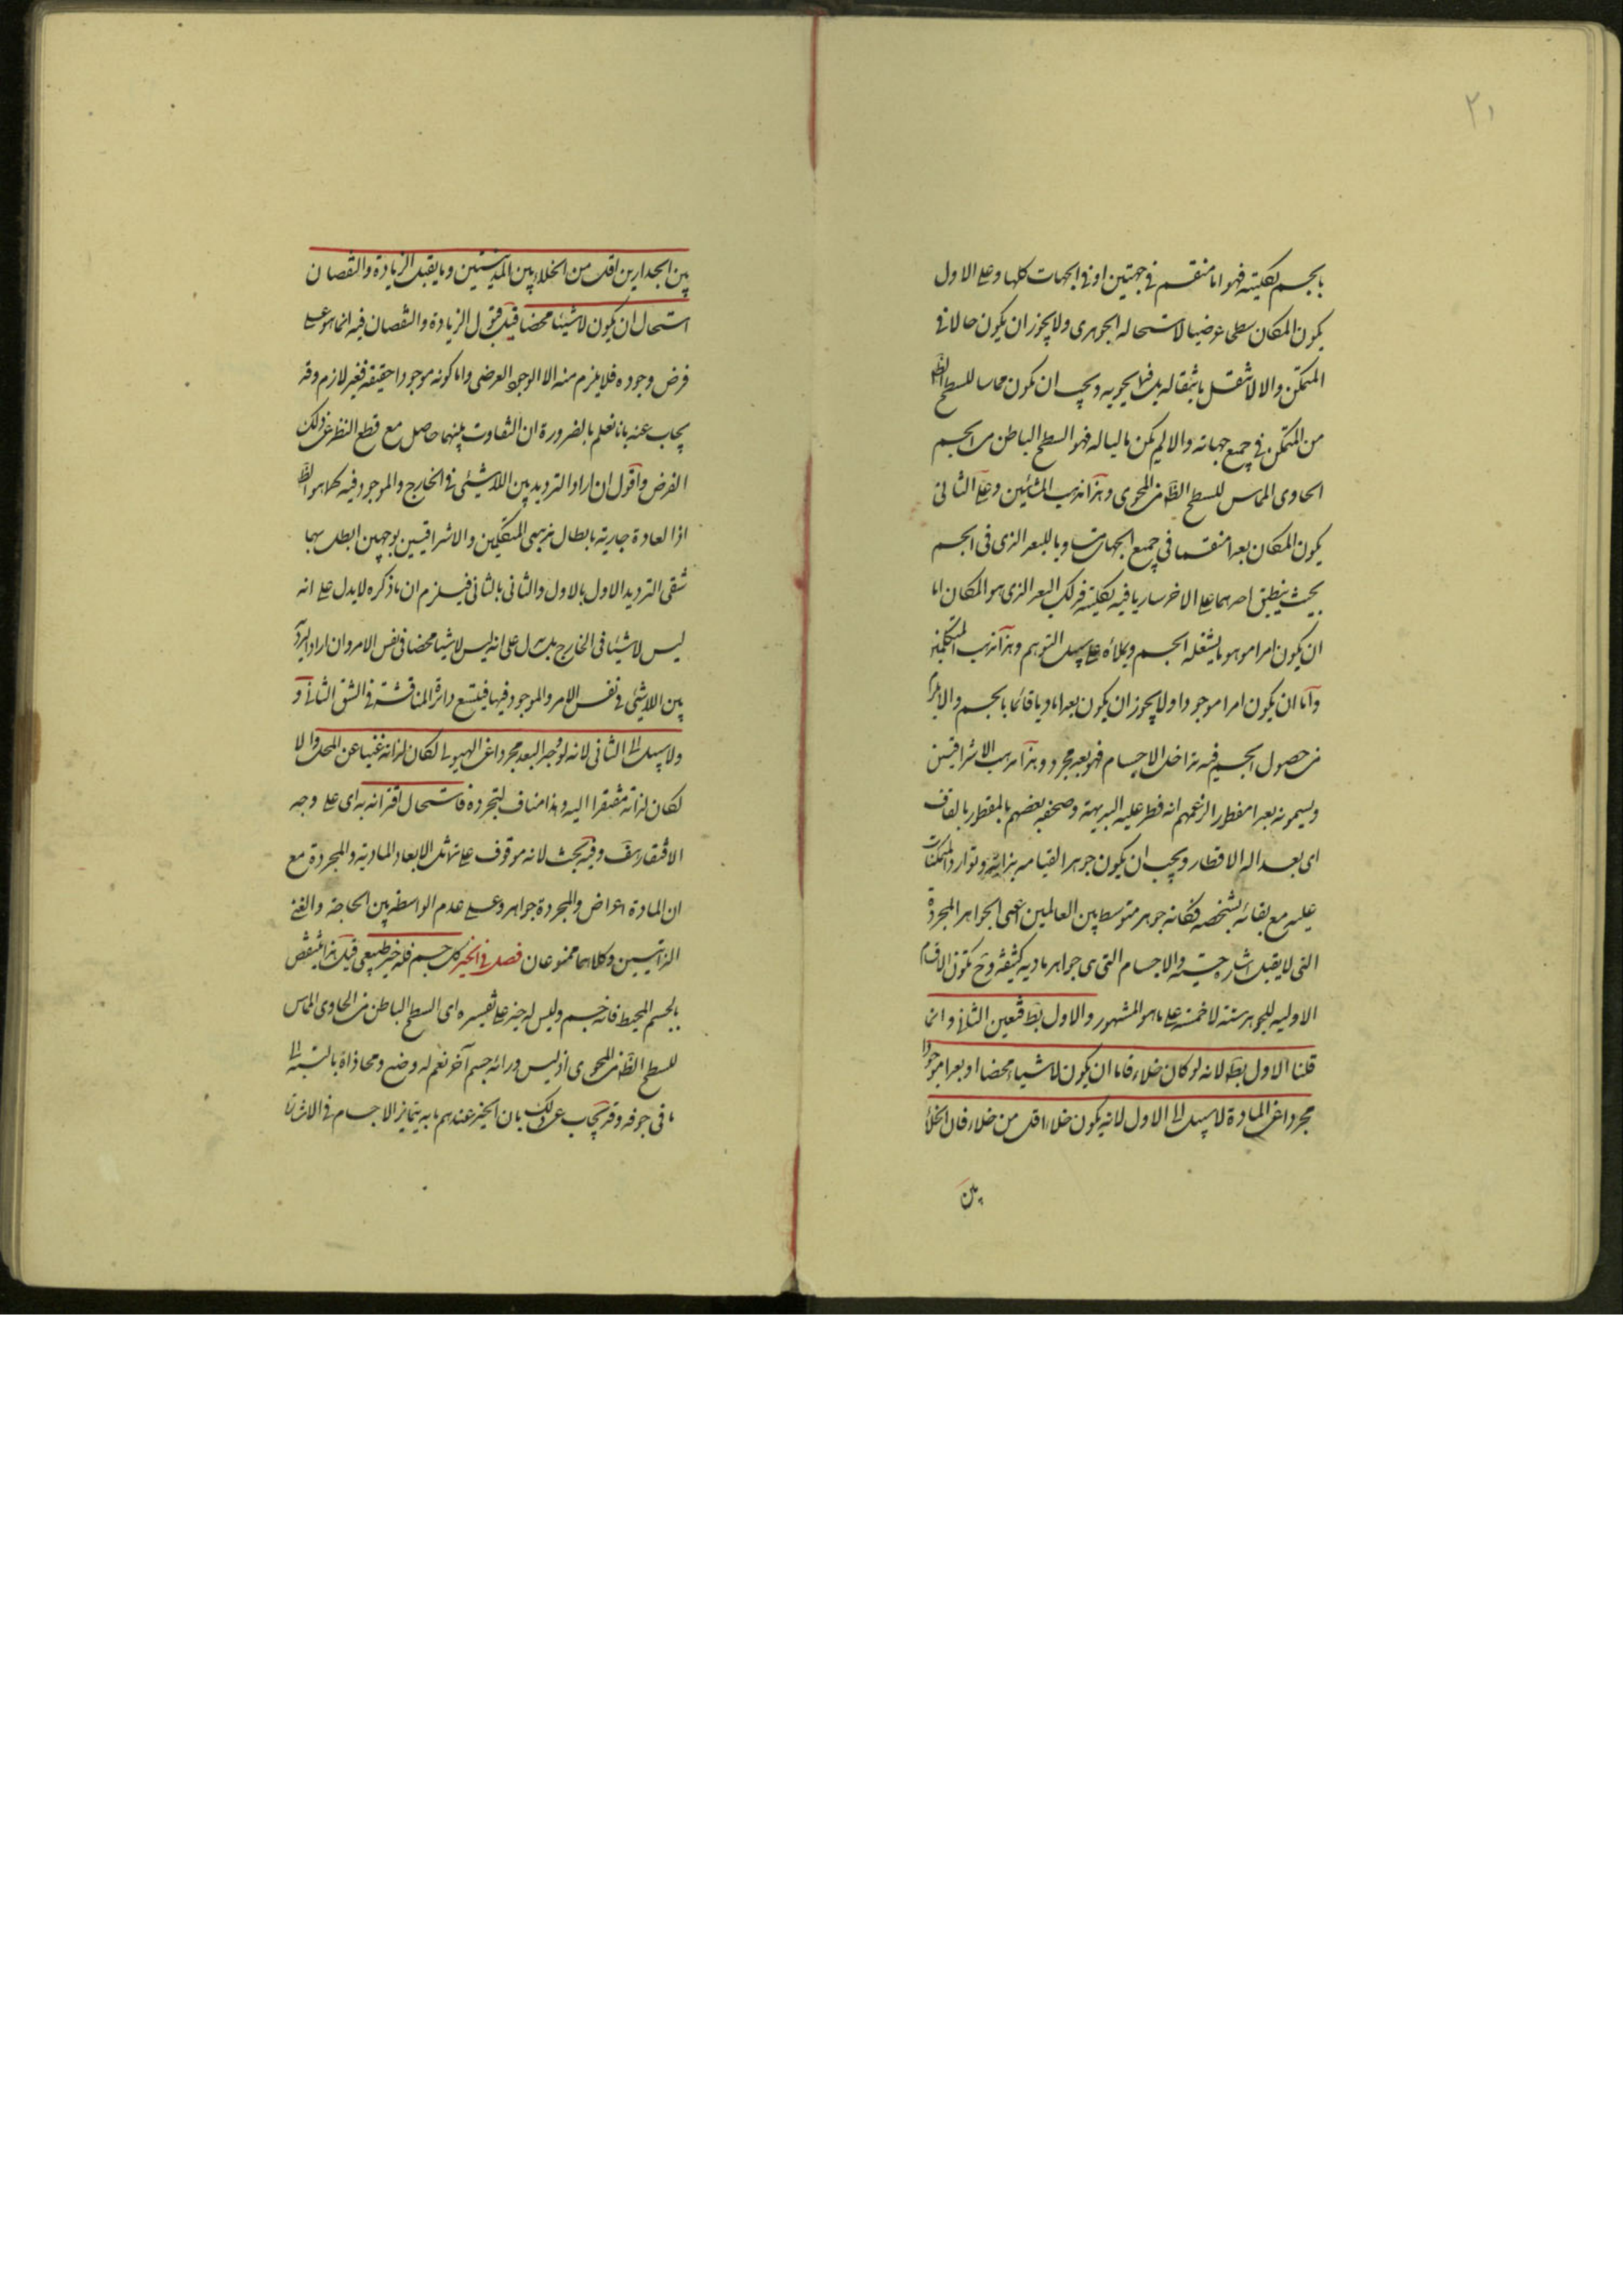 ٢١
بالجسم بكليته فهو اما منقسم في جهتين او في الجهات كلها وعلى الاول
يكون المكان سطحا عرضيا لاستحالة الجوهري ولا يجوز ان يكون حالا في
المتمكن والا لانتقل بانتقاله بل فيما يحويه ويجب ان يكون مماسا للسطح الظ
من المتمكن في جميع جهاته والا لم يكن ماليا له فهو السطح الباطن من الجسم
الحاوى المماس للسطح الظ من المحوى وهذا مذهب المشائين وعلى الثاني
يكون المكان بعدا منقسما في جميع الجهات مساويا للبعد الذى في الجسم
بحيث ينطبق احدهما على الاخر ساريا فيه بكليته فذلك البعد الذى هو المكان اما
ان يكون امرا موهوما يشغله الجسم ويملأه على سبيل التوهم وهذا مذهب المتكلمين
واما ان يكون امرا موجودا ولا يجوز ان يكون بعدا ماديا قائما بالجسم والا يلزم
من حصول الجسم فيه تداخل الاجسام فهو بعد مجرد وهذا مذهب الاشراقيين
ويسمونه بعدا مفطورا لزعمهم انه فطر عليه البديهة وصحفه بعضهم بالمقطور بالقاف
اى بعد اله الاقطار ويجب ان يكون جوهرا لقيامه بذاته وتوارد المتمكنات
عليه مع بقائه بشخصه فكانه جوهر متوسط بين العالمين اعنى الجواهر المجردة
التى لا يقبل اشارة حسية والاجسام التى هى جواهر مادية كثيفة وح تكون الاقسام
الاولية للجوهر ستة لا خمسة على ما هو المشهور والاول بط فتعين الثاني وانما
قلنا الاول بط لانه لو كان خلاء فاما ان يكون لا شياء محضا او بعدا موجودا
مجردا عن المادة لا سبيل الى الاول لانه يكون خلاء اقل من خلاء فان الخلاء
بين
بين الجدارين اقل من الخلاء بين المدينتين وما يقبل الزيادة والنقصان
استحال ان يكون لا شيئا محضا قيل قبول الزيادة والنقصان فيه انما هو على
فرض وجوده فلا يلزم منه الا الوجود الفرضى واما كونه موجودا حقيقة فغير لازم وقد
يجاب عنه بانا نعلم بالضرورة ان التفاوت بينهما حاصل مع قطع النظر عن ذلك
الفرض واقول ان اراد الترديد بين اللاشيئ في الخارج والموجود فيه كما هو الظ
اذ العادة جارية بابطال مذهبى المتكلمين والاشراقيين بوجهين ابطل بهما
شقى الترديد الاول بالاول والثانى بالثانى فيلزم ان ما ذكره لا يدل على انه
ليس لا شيئا في الخارج بل يدل على انه ليس لا شيئا محضا في نفس الامر وان اراد الترديد
بين اللاشيئ في نفس الامر والموجود فيها فيتسع دائرة المناقشة في الشق الثاني و
ولا سبيل الى الثانى لانه لو وجد البعد مجردا عن الهيولى لكان لذاته غنيا عن المحل والا
لكان لذاته مفتقرا اليه وهذا مناف لتجرده فاستحال اقترانه به اى على وجه
الافتقار هف وفيه بحث لانه موقوف على تماثل الابعاد المادية والمجردة مع
ان المادة اعراض والمجردة جواهر وعلى عدم الواسطة بين الحاجة والغنى
الذاتيين وكلاهما ممنوعان فصل في الحيز كل جسم فله حيز طبيعى قيل هذا ينتقض
بالجسم المحيط فانه جسم وليس له حيز على تفسيره اى السطح الباطن من الحاوى المماس
للسطح الظ من المحوى اذ ليس ورائه جسم آخر نعم له وضع ومحاذاة بالنسبة الى
ما في جوفه وقد يجاب عن ذلك بان الحيز عندهم ما به يتمايز الاجسام في الاشارة